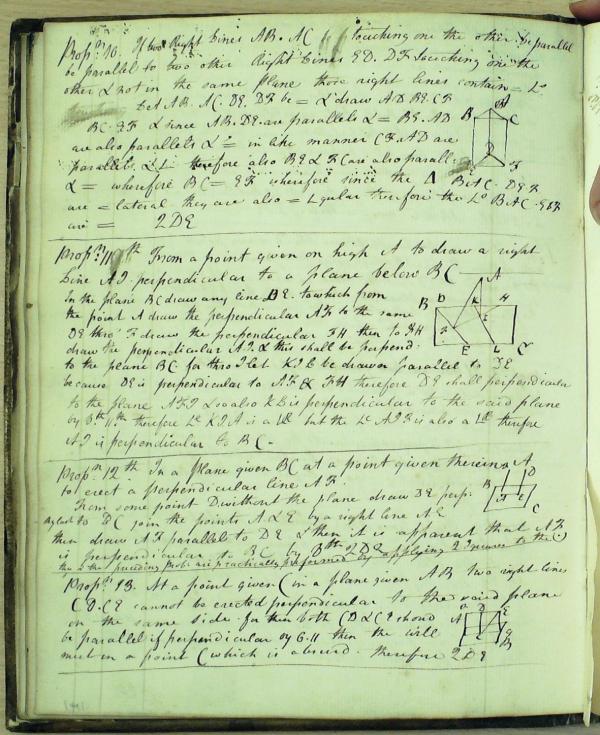 Prop.n 10. If two Right Lines AB. AC touching one the other be parallel
be parallel to two other Right Lines ED. DF touching one the
other & not in the same plane those right lines contain = Ls
Let AB. AC. DE. DF be = & draw AD BE. CF
BC. EF & since AB. DE. are parallels & = BE. AD
are also parallels & = in like manner CF. AD are
parallels &  therefore also BE & FC are also parall.
& = wherefore BC = EF wherefore since the Δ BAC. DEF
are = lateral they are also = Lgular therefore the Ls BAC. EDF
are = 2DE
A
B
C
D
F
Prop.n 11th From a point given on high A to draw a right
Line AI. perpendicular to a plane below BC
In the plane BC draw any line DE. to which from
the point A draw the perpendicular AF to the same
DE thro' F draw the perpendicular FH then to FH
draw the perpendicular AI. & this shall be perpend:
to the plane BC for thro' I let KIL be drawn parallel to DE
because DE is perpendicular to AF & FH therefore DE shall perpendicular
to the plane AFI & so also KL is perpendicular to the said plane
by 8th 11th therefore Le KIA is a  but the Le AIF is also a  therefore
AI is perpendicular to BC.
A
B
D
K
H
F
I
E
L
C
Prop.n 12th In a plane given BC at a point given therein A
to erect a perpendicular line AF.
From some point D without the plane draw DE perp.
 to BC join the points A & E by a right line AE
then draw AF parallel to DE & then it is apparent that AF
is perpendicular to BC by 8th 2DE
 the preceding Probs. are practically performed by applying 2 squares to the
B
C
Prop.n 13. At a point given C in a plane given AB two right lines
CD. CE cannot be erected perpendicular to the said plane
on the same side. for then both CD & CE should
be parallel if perpendicular by 6.11 then the will
meet in a point C which is absurd. therefore 2DE
A
D
E
C
B